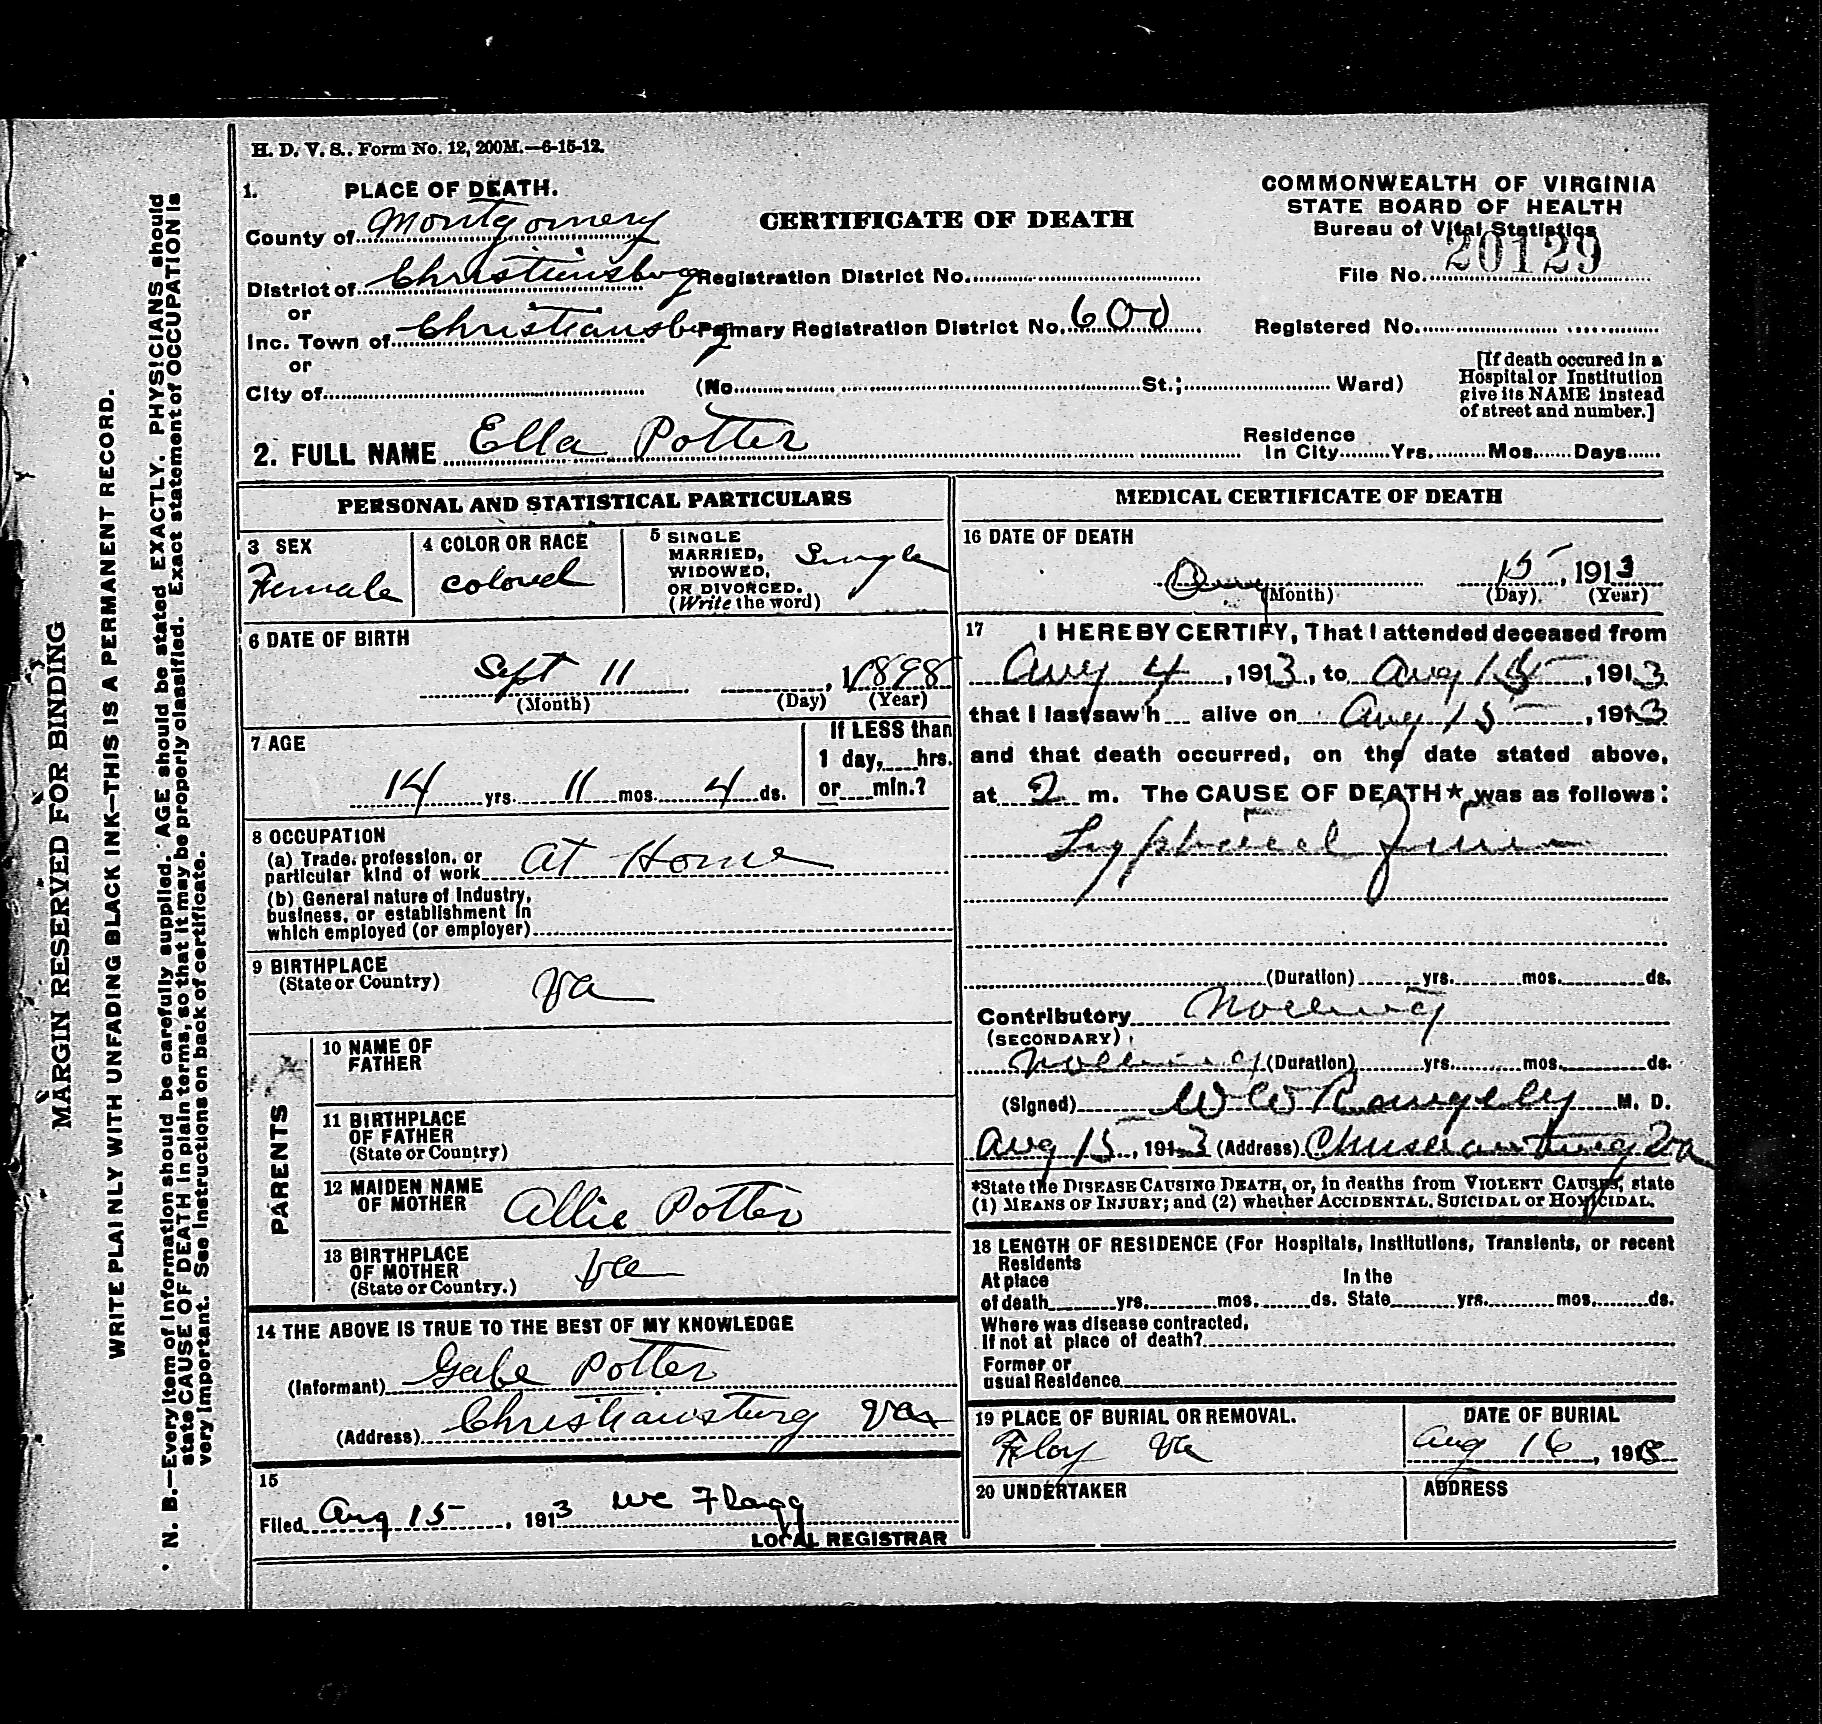 H. D. V. S.. Form No. 12, 200M.—6-15-12.
1. PLACE OF DEATH.
County of Montgomery
District of Christiansburg
or
Inc. Town of Christiansburg
or
City of
CERTIFICATE OF DEATH
Registration District No.
Primary Registration District No. 600
(No. St.; Ward)
COMMONWEALTH OF VIRGINIA
STATE BOARD OF HEALTH
Bureau of Vital Statistics
File No. 20129
Registered No.
[If death occured in a
Hospital or Institution
give its NAME instead
of street and number.]
2. FULL NAME Ella Potter
Residence
In City Yrs. Mos. Days
PERSONAL AND STATISTICAL PARTICULARS
3 SEX
Female
4 COLOR OR RACE
colored
5 SINGLE
MARRIED,
WIDOWED,
OR DIVORCED.
(Write the word)
Single
6 DATE OF BIRTH
Sept 11 , 1898
(Month) (Day) (Year)
7 AGE
14 yrs. 11 mos. 4 ds.
If LESS than
1 day, hrs.
or min.?
8 OCCUPATION
(a) Trade, profession, or
particular kind of work At Home
(b) General nature of Industry,
business, or establishment in
which employed (or employer)
9 BIRTHPLACE
(State or Country)
Va
PARENTS
10 NAME OF
FATHER
11 BIRTHPLACE
OF FATHER
(State or Country)
12 MAIDEN NAME
OF MOTHER
Allie Potter
13 BIRTHPLACE
OF MOTHER
(State or Country.)
Va
14 THE ABOVE IS TRUE TO THE BEST OF MY KNOWLEDGE
(Informant) Gabe Potter
(Address) Christiansburg Va
15
Filed Aug 15, 1913 WC Flagg
LOCAL REGISTRAR
MEDICAL CERTIFICATE OF DEATH
16 DATE OF DEATH
Aug 15, 1913
(Month) (Day) (Year)
17 I HEREBY CERTIFY, That I attended deceased from
Aug 4, 1913, to Aug 15, 1913
that I last saw h alive on Aug 15, 1913
and that death occurred, on the date stated above,
at 2 m. The CAUSE OF DEATH* was as follows:
Typhoid fever
(Duration) yrs. mos. ds.
Contributory
(SECONDARY)
(Duration) yrs. mos. ds.
(Signed) W W M. D.
Aug 15, 1913 (Address) Christiansburg Va
*State the DISEASE CAUSING DEATH, or, in deaths from VIOLENT CAUSES, state
(1) MEANS OF INJURY; and (2) whether ACCIDENTAL, SUICIDAL or HOMICIDAL.
18 LENGTH OF RESIDENCE (For Hospitals, Institutions, Transients, or recent
Residents
At place In the
of death yrs. mos. ds. State yrs. mos. ds.
Where was disease contracted,
If not at place of death?
Former or
usual Residence
19 PLACE OF BURIAL OR REMOVAL.
Va
DATE OF BURIAL
Aug 16, 1913
20 UNDERTAKER
ADDRESS
MARGIN RESERVED FOR BINDING
WRITE PLAINLY WITH UNFADING BLACK INK—THIS IS A PERMANENT RECORD.
N. B.—Every item of Information should be carefully supplied. AGE should be stated EXACTLY. PHYSICIANS should
state CAUSE OF DEATH in plain terms, so that it may be properly classified. Exact statement of OCCUPATION is
very important. See Instructions on back of certificate.